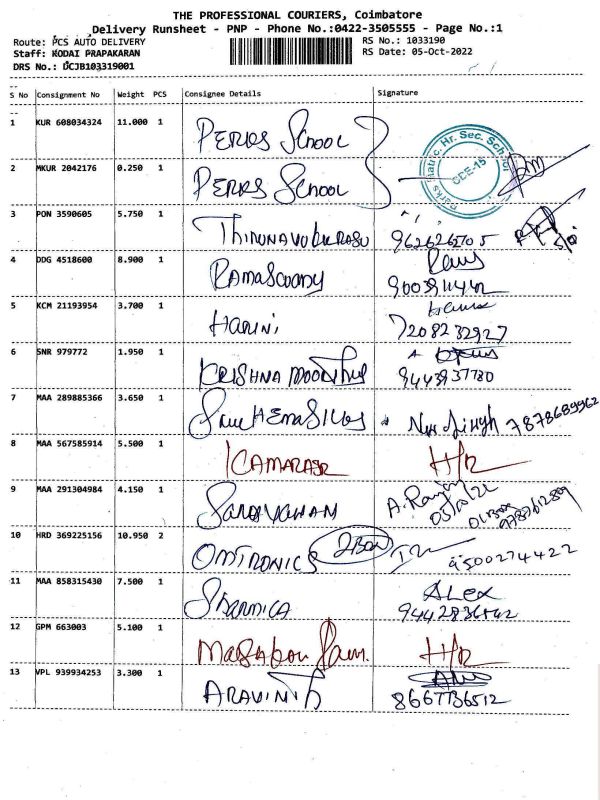 THE PROFESSIONAL COURIERS, Coimbatore
Delivery Runsheet - PNP - Phone No.:0422-3505555 - Page No.:1
Route: PCS AUTO DELIVERY RS No.: 1033190
Staff: KODAI PRAPAKARAN RS Date: 05-Oct-2022
DRS No.: DCJB103319001
S No Consignment No Weight PCS Consignee Details Signature
1 KUR 608034324 11.000 1 PERKS School
2 MKUR 2042176 0.250 1 PERKS School
Perks Matric. Hr. Sec. School
CBE-15
3 PON 3590605 5.750 1 THIRUNAVUKKRASU 9626262705
4 DDG 4518600 8.900 1 RAMASWAMY
9003911442
5 KCM 21193954 3.700 1 HARINI
7208232927
6 SNR 979772 1.950 1 KRISHNA MOORTHY
9443937780
7 MAA 289885366 3.650 1 Sree HEMA SILKS 7878689962
8 MAA 567585914 5.500 1 KAMARAJ H/R
9 MAA 291304984 4.150 1 SARAVANAN
05/10/22
10 HRD 369225156 10.950 2 OMTRONICS 2 Box 9500274422
11 MAA 858315430 7.500 1 SHARMICA ALEX
12 GPM 663003 5.100 1 H/R
13 VPL 939934253 3.300 1 ARAVINTH
8667736512